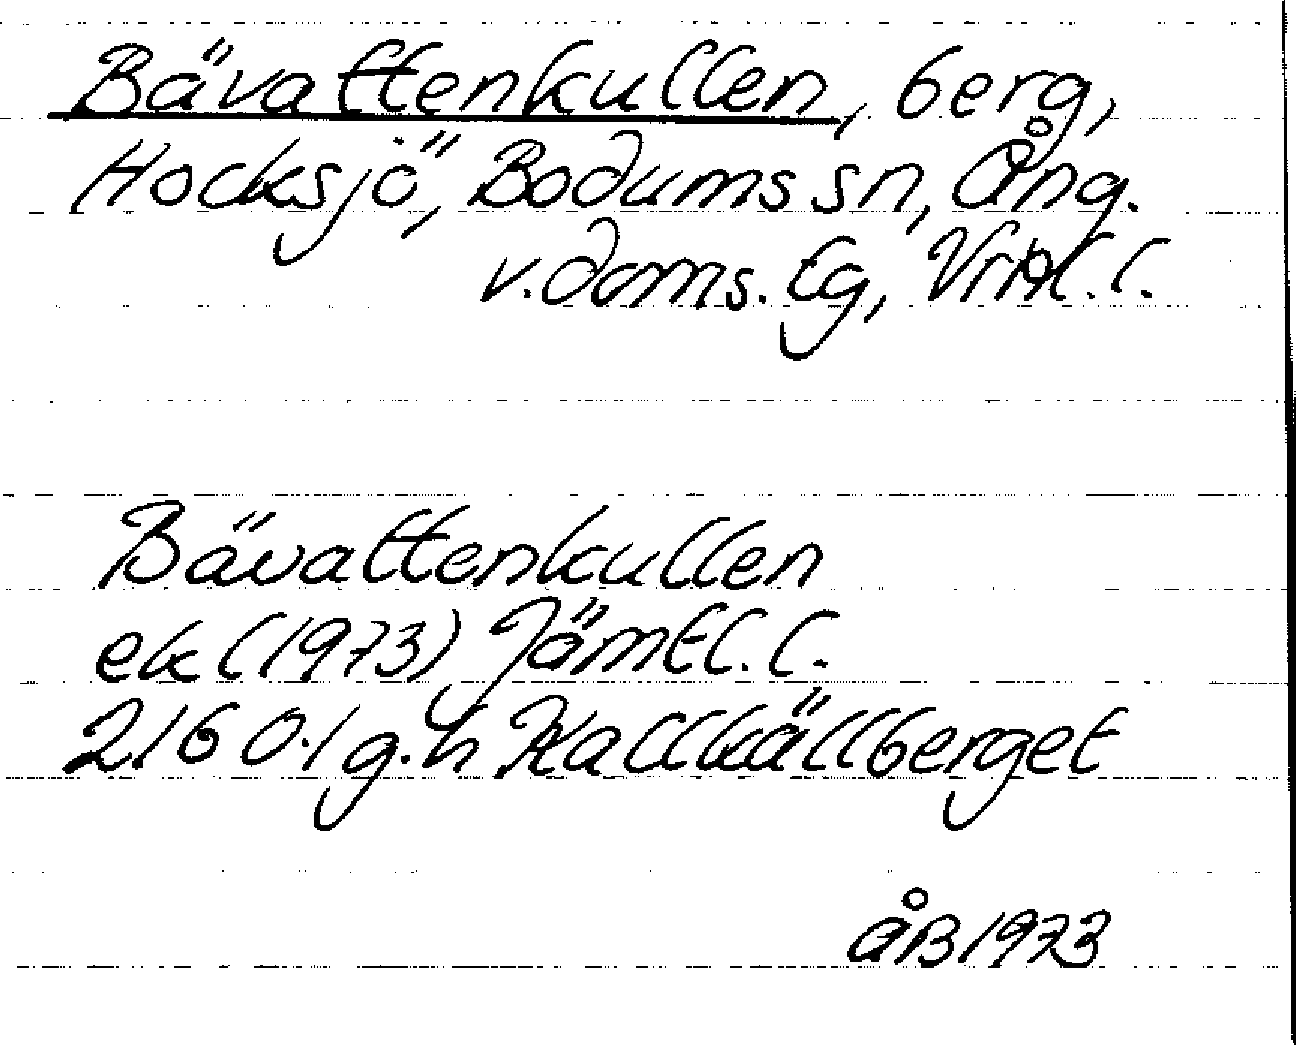 Bävattenkullen, berg,
Hocksjö, Bodums sn, Ång.
v.doms. lg, Vrtl. l.
Bävattenkullen
ek (1973) Jämtl. l.
21601 g.h Kallkällberget
åB 1973